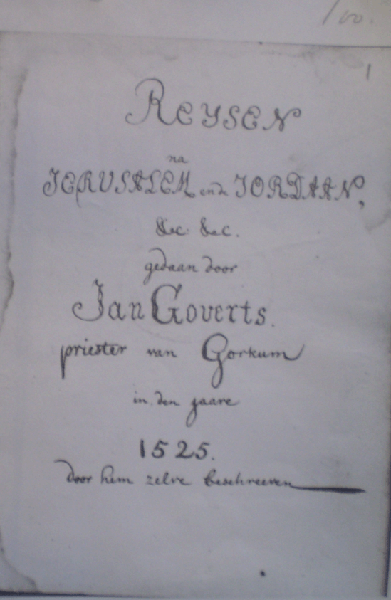 100.
1
REYSEN
na
JERUSALEM ende JORDAAN,
&c &c.
gedaan door
Jan Goverts.
priester van Gorkum
in den jaare
1525.
door hem zelve beschreeven